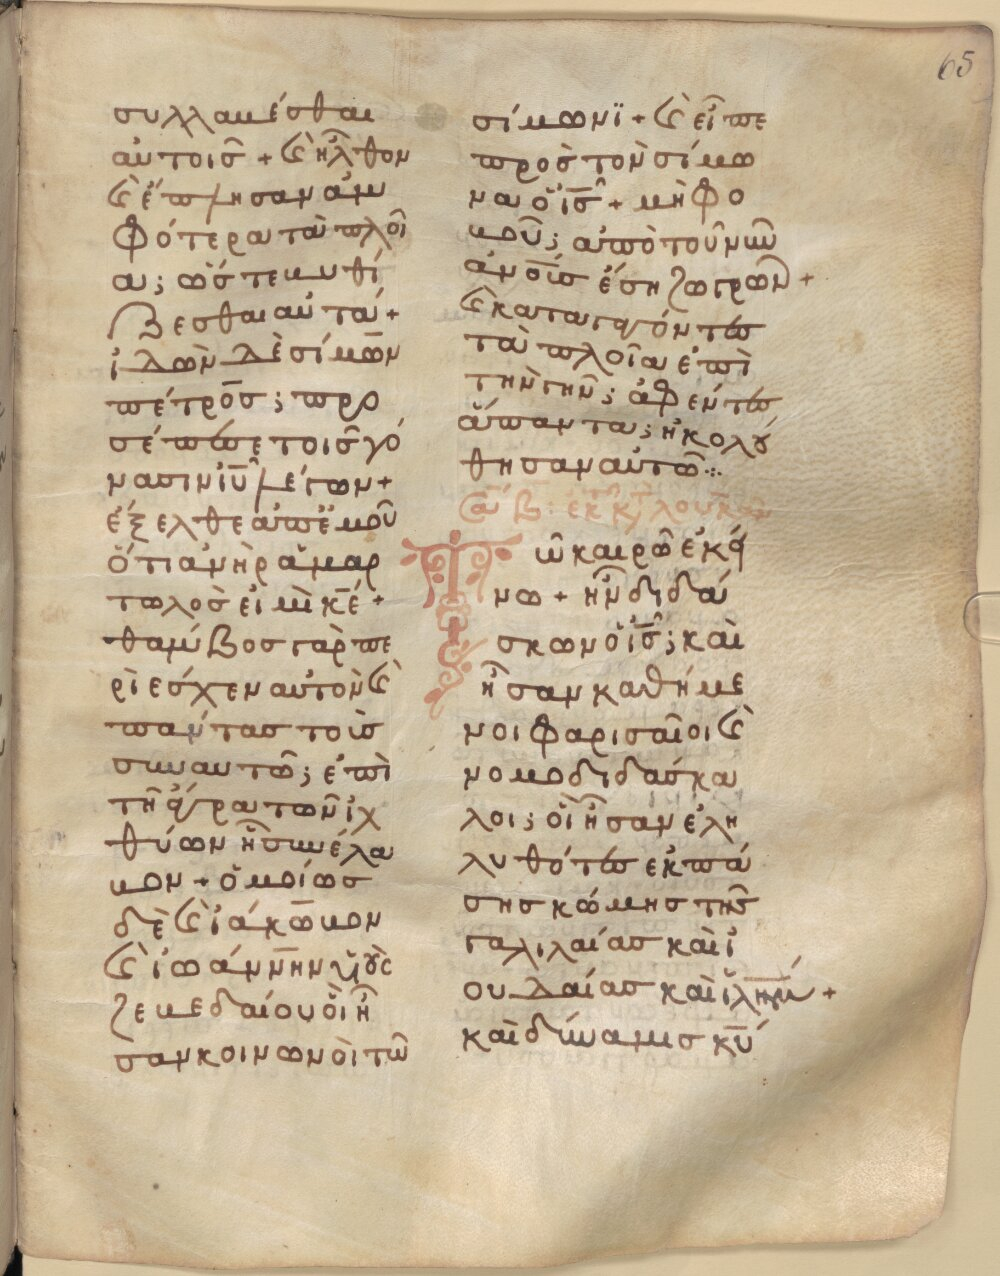 65
συλλαβέσθαι
αὐτοῖσ + καὶ ἦλθον
καὶ ἔπλησαν ἀμ
φότερα τὰ πλοῖ
α; ὥστε βυθί
ζεσθαι αὐτά +
ἰδὼν δὲ σίμων
πέτροσ; προ
σέπεσε τοῖσ γό
νασιν ἰῦ λέγων +
ἔξελθε ἀπἐμοῦ
ὅτι ἀνὴρ ἁμαρ
τωλὸσ εἰμὶ κ̅ε̅ +
θάμβοσ γὰρ πε
ριέσχεν αὐτὸν καὶ
πάντασ τοὺσ
σὺν αὐτῶ; ἐπὶ
τῆ ἄγρα τῶν ἰχ
θύων ἧ συνέλα
βον + ὁμοίωσ
δὲ καὶ ἰάκωβον
καὶ ἰωάννην υἱοὺσ
ζεβεδαίου οἳ ἦ
σαν κοινωνοὶ τῶ
σίμωνϊ + καὶ εἶπε
πρὸσ τὸν σίμω
να ὁ ι̅σ̅ + μὴ φο
βοῦ; ἀπὸ τοῦ νῦν
ἀν̅ο̅ῦ̅σ̅ ἔση ζωγρῶν +
καὶ καταγαγόντεσ
τὰ πλοῖα ἐπὶ
τὴν γῆν; ἀφέντεσ
ἅπαντα; ἠκολού
θησαν αὐτῶ ·:·
σα β : ἐκ τοῦ κατὰ λουκᾶν
Τῶ καιρῶ ἐκεί
νω + ἦν διδά
σκων ὁ ι̅σ̅; καὶ
ἦσαν καθήμε
νοι φαρισαῖοι καὶ
νομοδιδάσκα
λοι; οἳ ἦσαν ἐλη
λυθότεσ ἐκ πά
σησ κώμησ τῆσ
γαλιλαίασ καὶ ἰ
ουδαίασ καὶ ἰ̅λ̅η̅μ̅ +
καὶ δύναμισ κ̅υ̅